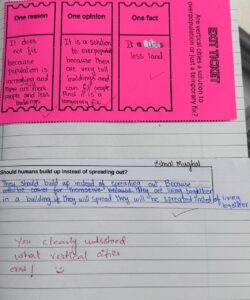 EXIT TICKET
Are vertical cities a solution to
overpopulation or just a temporary fix?
One reason
It does
not fix
because
population is
increasing and
There are more
people and less
buildings
One opinion
It is a solution
to overpopulation
because there
are very tall
buildings and
can fit people
And it is a
temporary fix
One fact
It
less land
Should humans build up instead of spreading out?
They should build up instead of spreading out Because
will be easier for themselves because they are living together
in a building if they will spread they will be spreated insted of living
together
You clearly understand
what vertical cities
are!